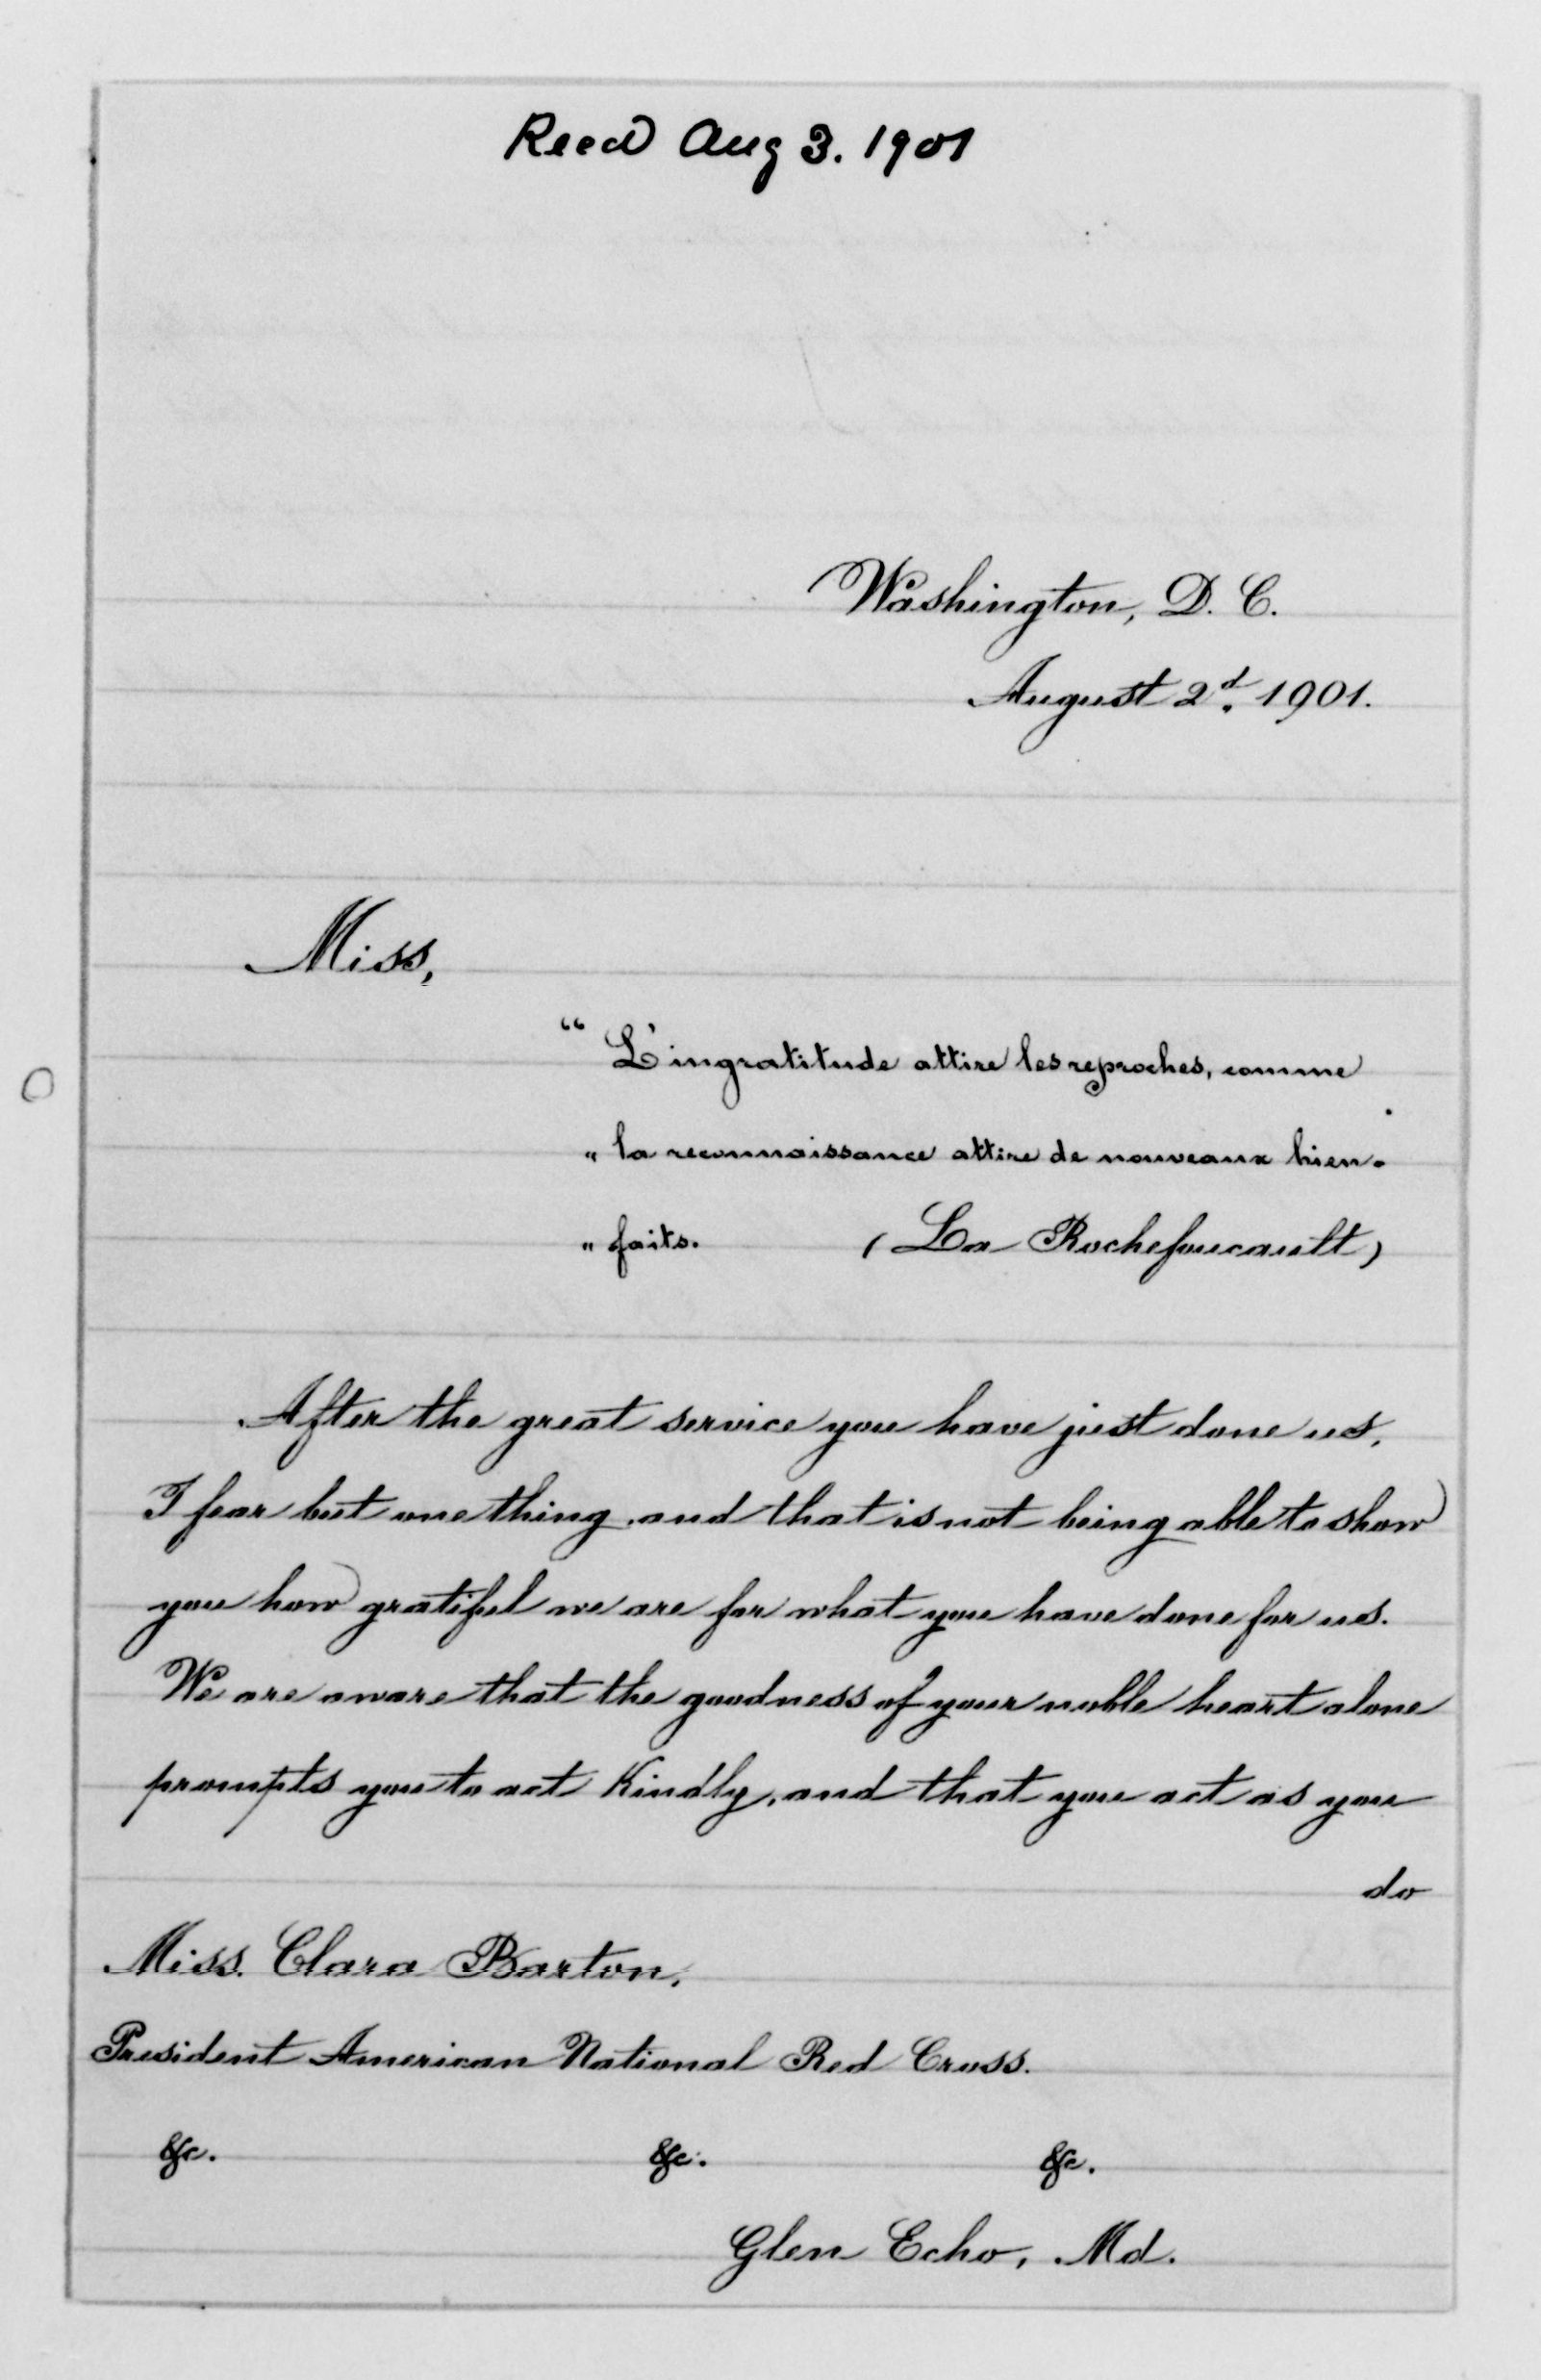 Recd Aug 3. 1901
Washington, D. C.
August 2d. 1901.
Miss,
“ L'ingratitude attire les reproches, comme
" la reconnaissance attire de nouveaux bien-
" faits. (La Rochefoucault)
After the great service you have just done us,
I fear but one thing, and that is not being able to show
you how gratiful we are for what you have done for us.
We are aware that the goodness of your noble heart alone
prompts you to act Kindly, and that you act as you
do
Miss. Clara Barton,
President American National Red Cross.
&c. &c. &c.
Glen Echo, Md.